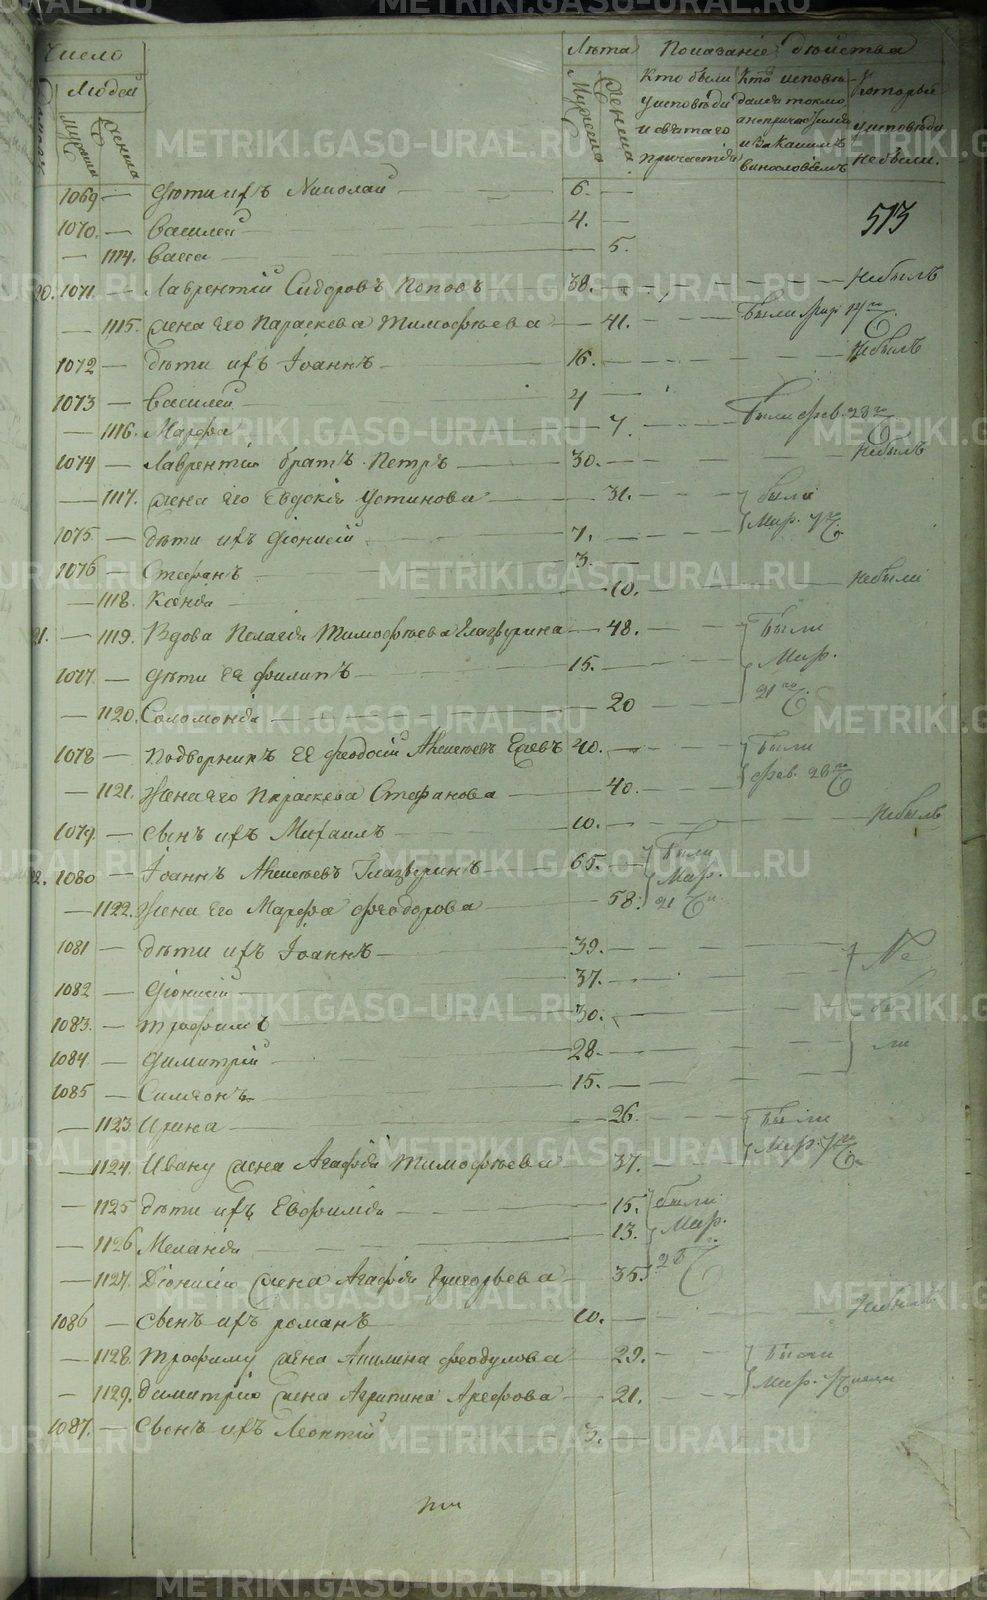 Число
Людей
Мужеска
Женска
Лѣта
Мужеска
Женска
Показаніе дѣйства
Кто были у исповѣди и святаго причастія
Кто исповѣдался токмо а не причастился и за какимъ винословіемъ
Которые у исповѣди не были.
513
1069 — Дѣти ихъ Николай — 6. —
1070. — Василей — 4. —
— 1114. Васса — 5.
20. 1071 — Лаврентій Сидоровъ Поповъ — 38. — Небылъ
— 1115. Жена его Параскева Тимофѣева — 41. — Были Мар. 14го
1072 — Дѣти ихъ Іоаннъ — 16. — Небылъ
1073 — Василей — 4 —
— 1116. Марфа — 7. — Были Фев. 28го
1074 — Лаврентія братъ Петръ — 30. — Небылъ
— 1117. Жена его Евдокія Устинова — 31. — Были
1075. — Дѣти ихъ Діонисій — 7. — Мар. 7го
1076 — Стефанъ — 3. —
— 1118. Ксенія — 10. — Небыли
21. — 1119. Вдова Пелагія Тимофѣева Глазырина — 48. — Были
1077. — Дѣти ея Филипъ — 15. — Мар.
— 1120. Соломонія — 20 21го
1078 — Подворникъ ея Феодосій Алексѣевъ — 40. — Были
— 1121. Жена его Параскева Стефанова — 40. — Фев. 28го
1079. — Сынъ ихъ Михаилъ — 10. — Небылъ
22. 1080 — Іоаннъ Алексѣевъ Глазыринъ — 65. — Были Мар.
— 1122. Жена его Марфа Феодорова — 58. 21
1081 — Дѣти ихъ Іоаннъ — 39. — Не
1082 — Діонисій — 37. —
1083. — Трофимъ — 30. — бы
1084 — Димитрій — 28. — ли
1085 — Симеонъ — 15. —
— 1123 Ирина — 26. — Были
— 1124. Ивану жена Агафія Тимофѣева — 37. — Мар. 7го
— 1125 Дѣти ихъ Евфимія — 15. Были
— 1126 Меланія — 13. Мар.
— 1127. Діонисію жена Агафія Григорьева — 35.
1086 — Сынъ ихъ Романъ — 10. — Небылъ
— 1128. Трофиму жена Акилина Феодулова — 29. — Были
— 1129. Димитрію жена Агрипина Арефова — 21. — Мар. 7
1087. — Сынъ ихъ Леонтій — 3. —